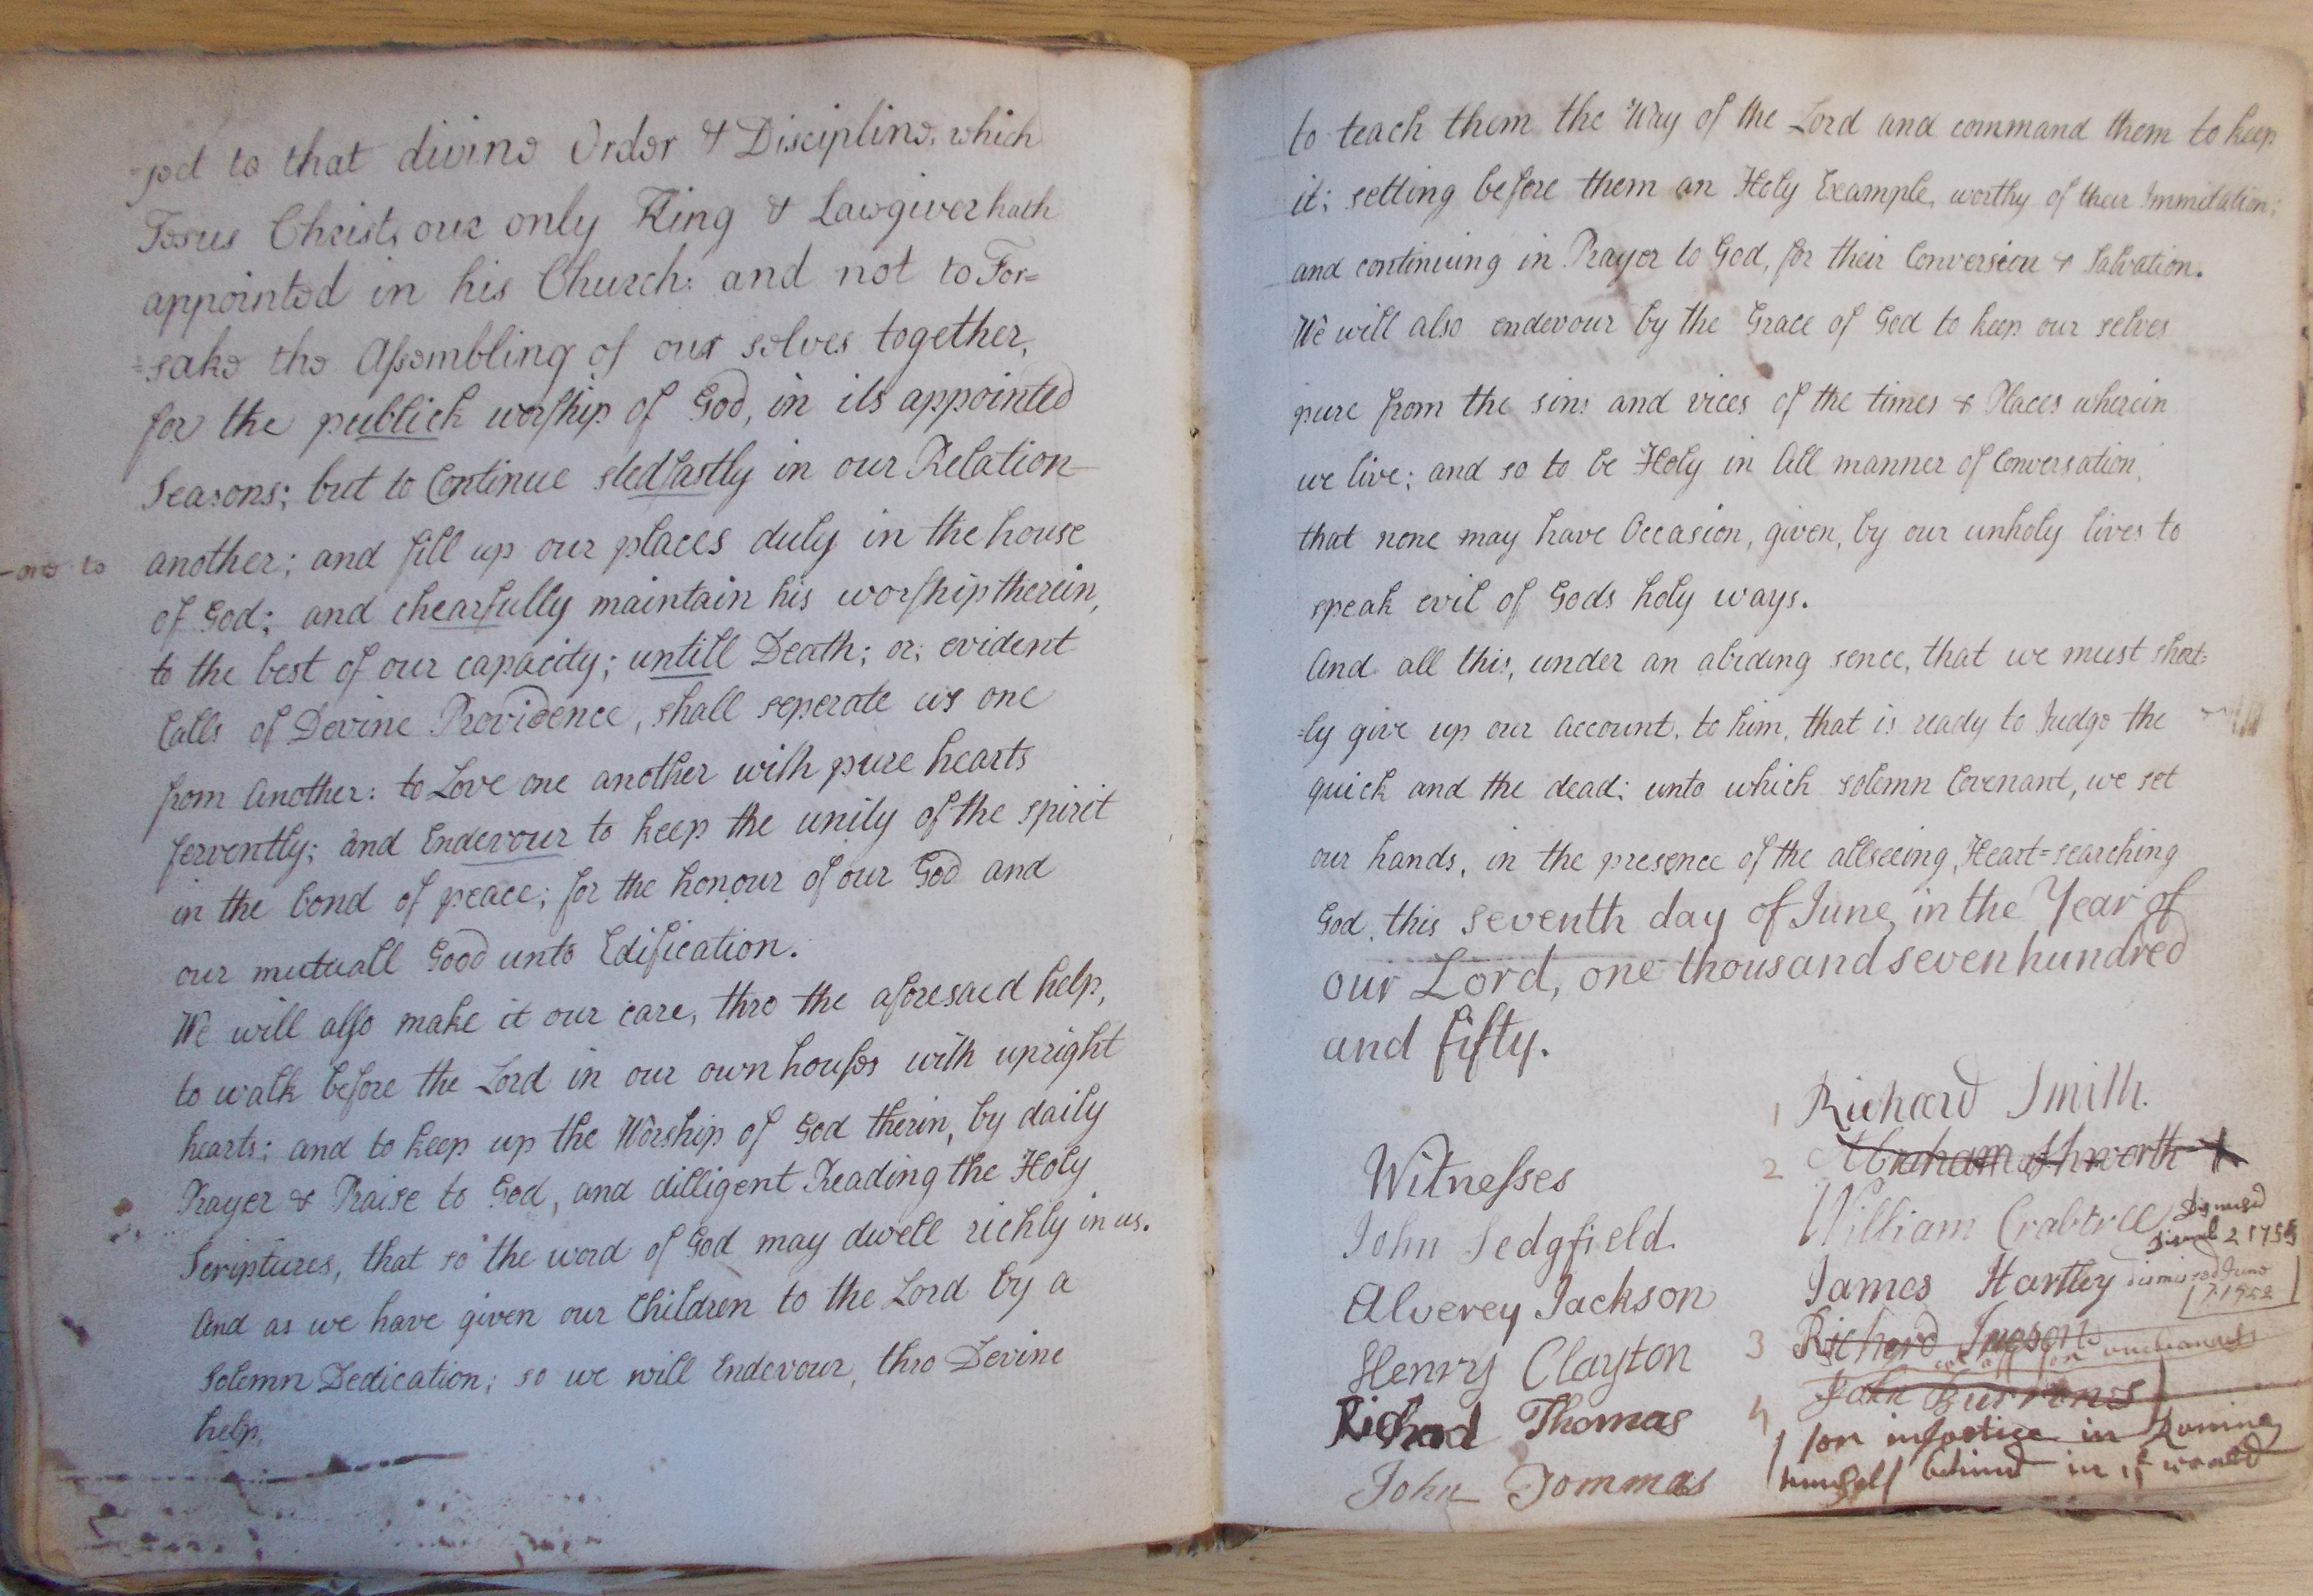 =ged to that divine Order & Discipline, which
Jesus Christ, our only King & Lawgiver hath
appointed in his Church: and not to For=
=sake the Assembling of our selves together,
for the publick worship of God, in its appointed
Seasons; but to Continue stedfastly in our Relation
-one to another; and fill up our places duly in the house
of God; and chearfully maintain his worship therein,
to the best of our capacity; untill Death; or; evident
Calls of Devine Providence, shall seperate us one
from Another: to Love one another with pure hearts
fervently; and Endevour to keep the unity of the spirit
in the bond of peace; for the honour of our God and
our mutuall Good unto Edification.
We will also make it our care, thro the aforesaed help,
to walk before the Lord in our own houses with upright
hearts; and to keep up the Worship of God therin, by daily
Prayer & Praise to God, and dilligent Reading the Holy
Scriptures, that so the word of God may dwell richly in us.
And as we have given our Children to the Lord by a
Solemn Dedication; so we will Endevour, thro Devine
help,
to teach them the Way of the Lord and command them to keep
it; setting before them an Holy Example, worthy of their Immitation;
and continuing in Prayer to God, for their Conversion & Salvation.
We will also endevour by the Grace of God to keep our selves
pure from the sins and vices of the times & Places wherein
we live; and so to be Holy in All manner of Conversation,
that none may have Occasion, given, by our unholy lives to
speak evil of Gods holy ways.
And all this, under an abiding sence, that we must short=
=ly give up our account, to him, that is ready to Judge the
quick and the dead; unto which solemn Covenant, we set
our hands, in the presence of the allseeing, Heart=searching
God, this seventh day of June in the Year of
our Lord, one thousand seven hundred
and fifty.
Witnesses
John Sedgfield.
Alverey Jackson
Henry Clayton
Richard Thomas
John Tommas
1 Richard Smith.
2 Abraham Ashworth
William Crabtree Dismised
2 1755
James Hartley dismised June
7 1752
3 Richard Ingson
cut off for
4 John Burrones
for injustice in Runing
himself behind in ye world